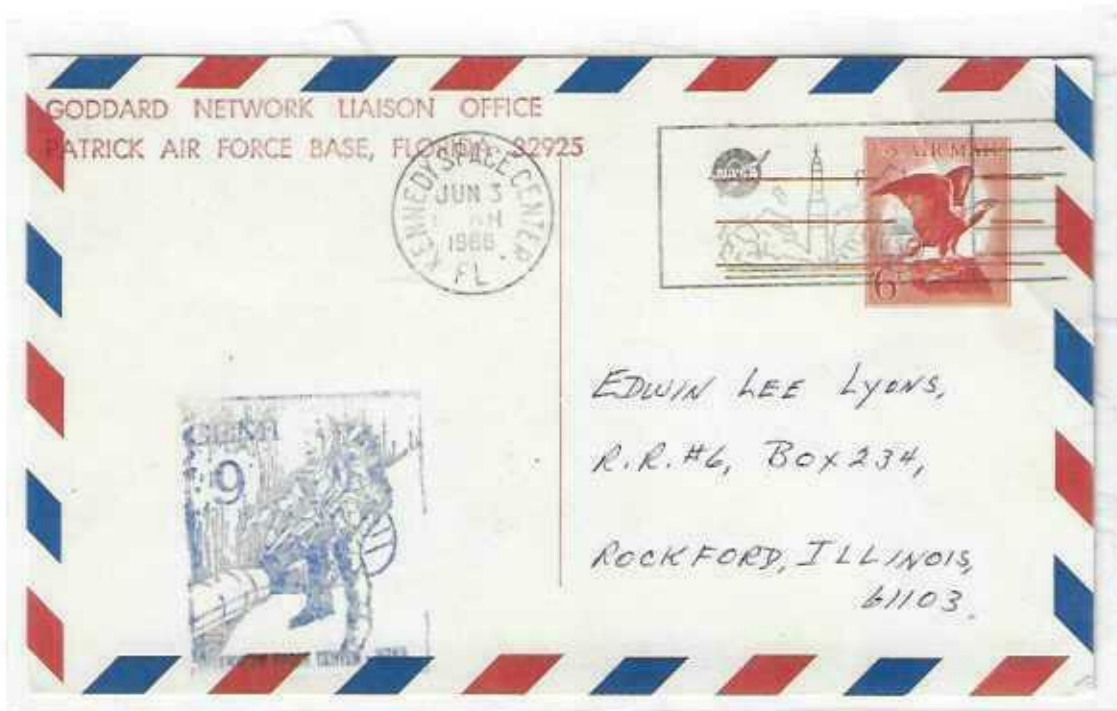 GODDARD NETWORK LIAISON OFFICE
PATRICK AIR FORCE BASE, FLORIDA 32925
KENNEDY SPACE CENTER
JUN 3
1966
FL
NASA
U.S. AIR MAIL
6¢
EDWIN LEE LYONS,
R.R.#6, BOX 234,
ROCKFORD, ILLINOIS,
61103.
9